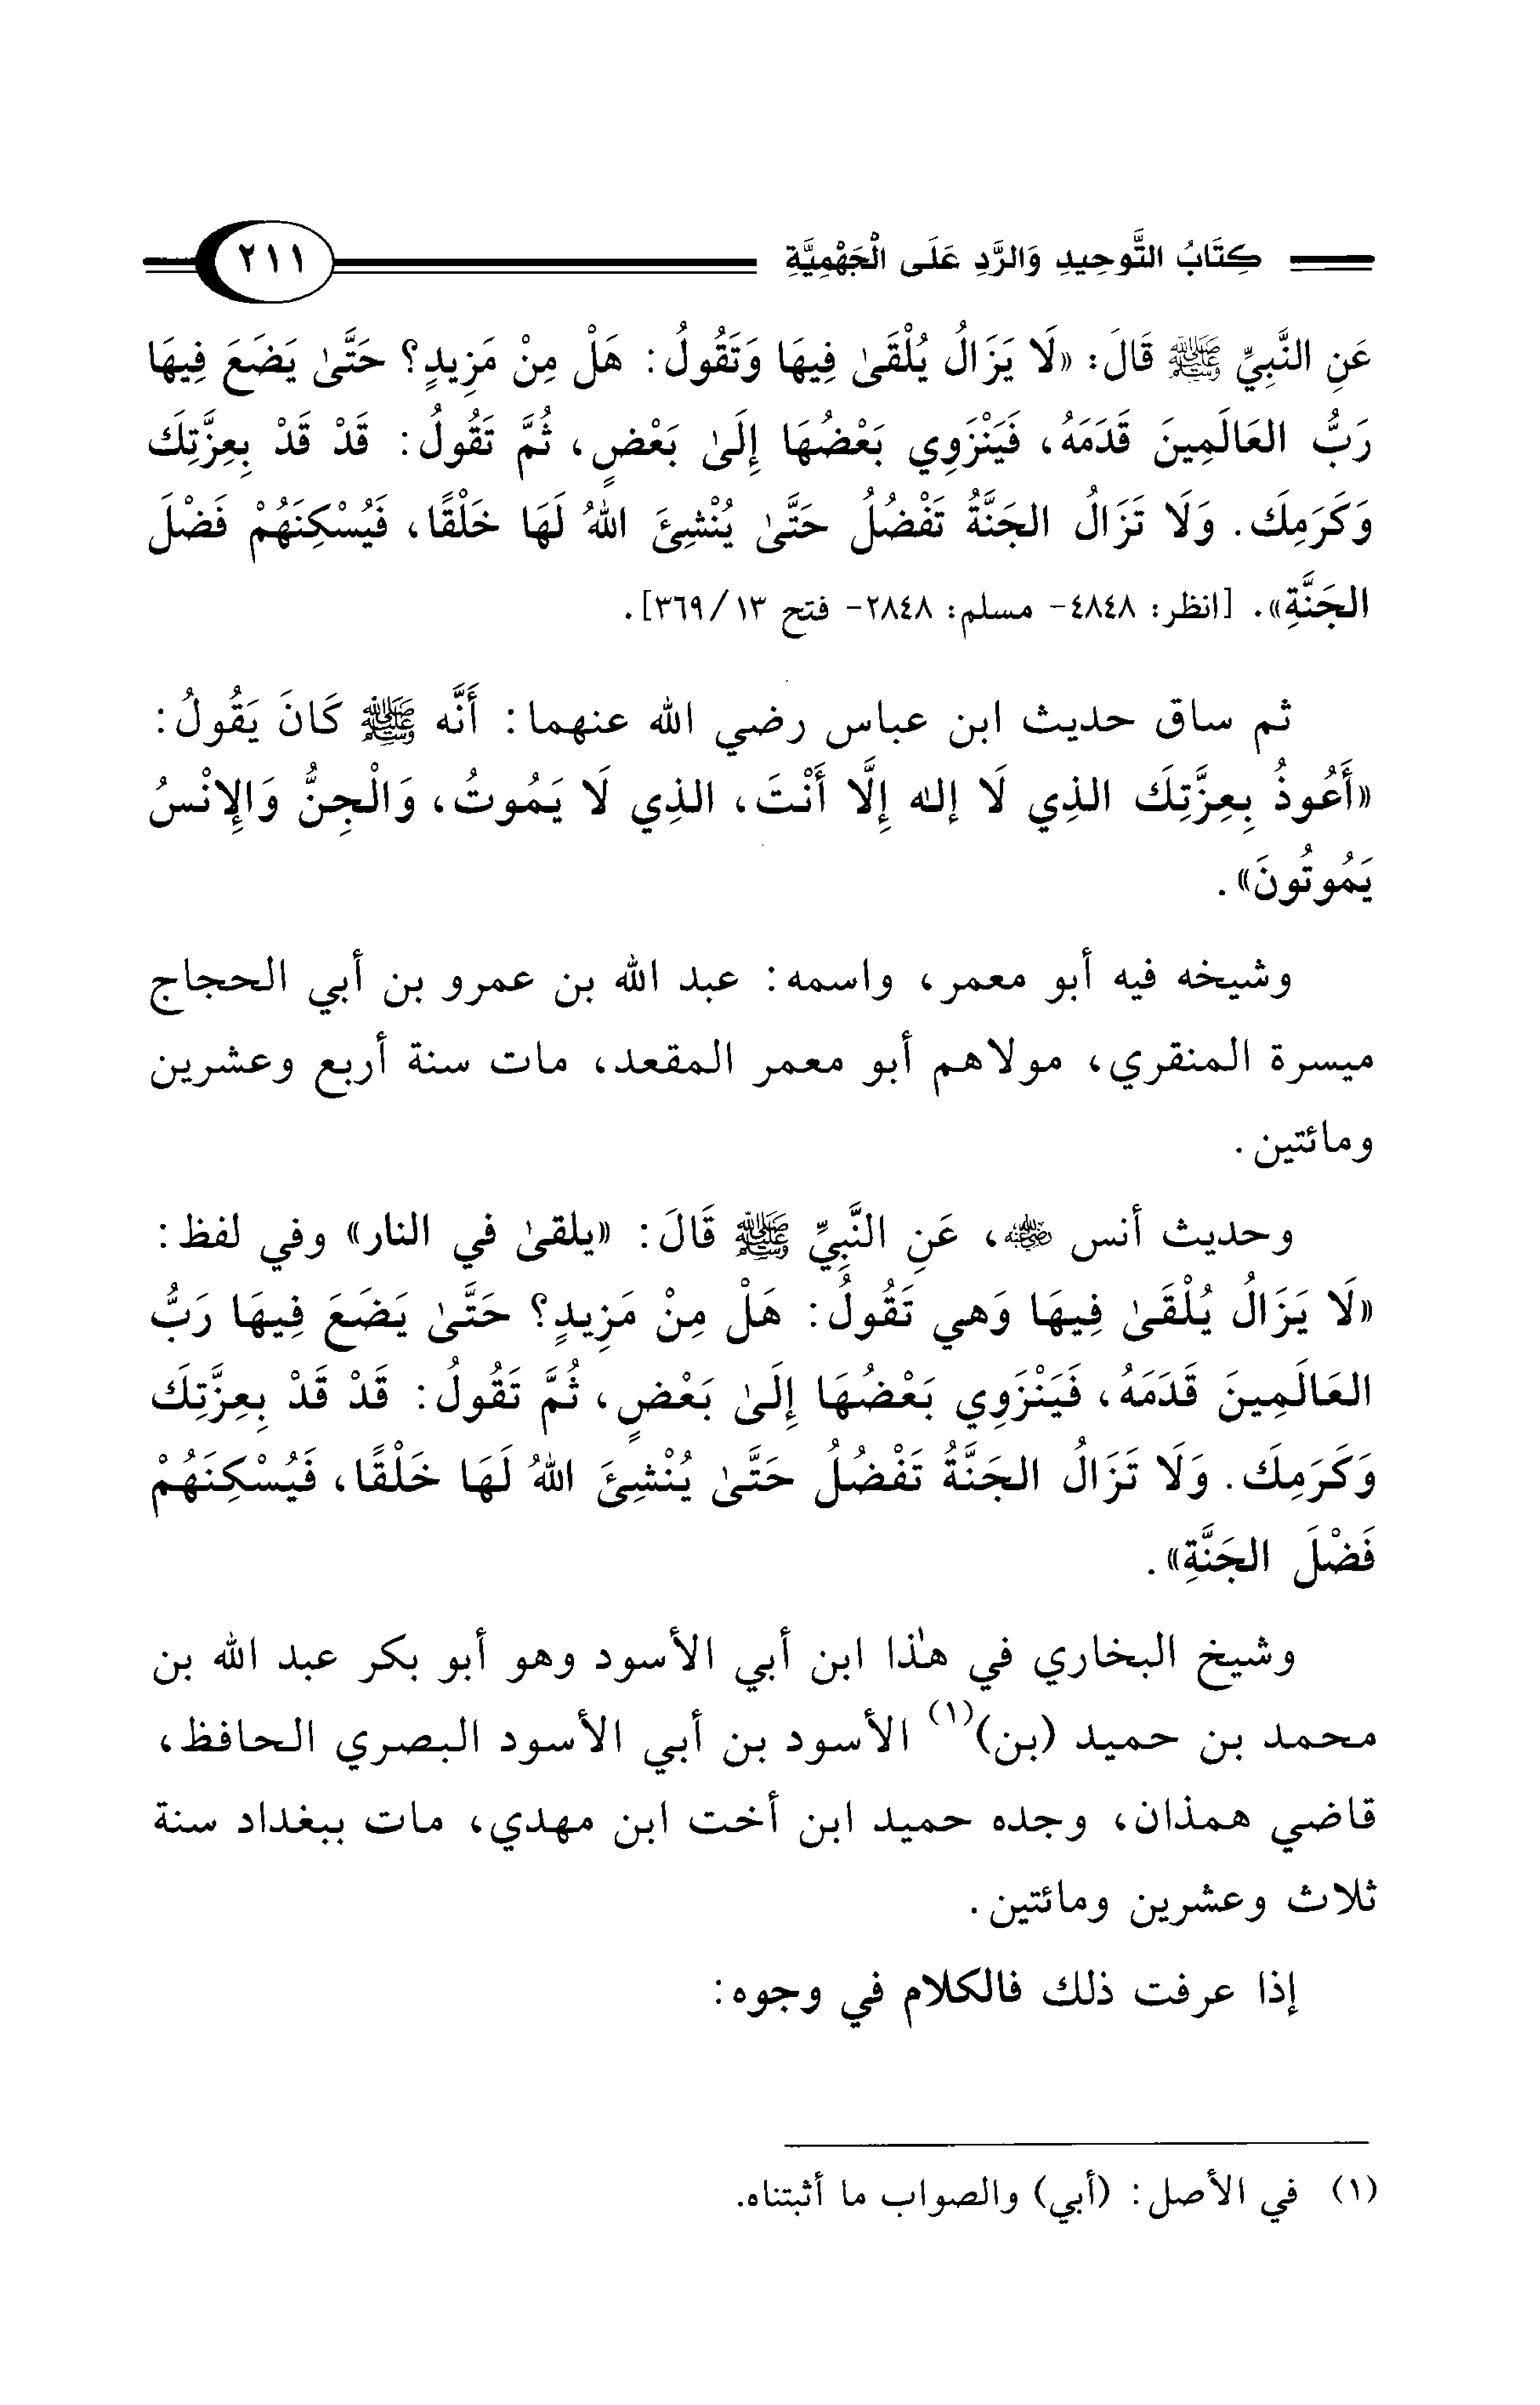 كِتَابُ التَّوحِيدِ وَالرَّدِ عَلَى الْجَهْمِيَّةِ ٢١١
عَنِ النَّبِيِّ ﷺ قَالَ: «لَا يَزَالُ يُلْقَىٰ فِيهَا وَتَقُولُ: هَلْ مِنْ مَزِيدٍ؟ حَتَّىٰ يَضَعَ فِيهَا
رَبُّ العَالَمِينَ قَدَمَهُ، فَيَنْزَوِي بَعْضُهَا إِلَىٰ بَعْضٍ، ثُمَّ تَقُولُ: قَدْ قَدْ بِعِزَّتِكَ
وَكَرَمِكَ. وَلَا تَزَالُ الجَنَّةُ تَفْضُلُ حَتَّىٰ يُنْشِئَ اللهُ لَهَا خَلْقًا، فَيُسْكِنَهُمْ فَضْلَ
الجَنَّةِ». [انظر: ٤٨٤٨- مسلم: ٢٨٤٨- فتح ١٣/ ٣٦٩].
ثم ساق حديث ابن عباس رضي الله عنهما: أَنَّه ﷺ كَانَ يَقُولُ:
«أَعُوذُ بِعِزَّتِكَ الذِي لَا إله إِلَّا أَنْتَ، الذِي لَا يَمُوتُ، وَالْجِنُّ وَالإِنْسُ
يَمُوتُونَ».
وشيخه فيه أبو معمر، واسمه: عبد الله بن عمرو بن أبي الحجاج
ميسرة المنقري، مولاهم أبو معمر المقعد، مات سنة أربع وعشرين
ومائتين.
وحديث أنس رضي الله عنه، عَنِ النَّبِيِّ ﷺ قَالَ: «يلقىٰ في النار» وفي لفظ:
«لَا يَزَالُ يُلْقَىٰ فِيهَا وَهي تَقُولُ: هَلْ مِنْ مَزِيدٍ؟ حَتَّىٰ يَضَعَ فِيهَا رَبُّ
العَالَمِينَ قَدَمَهُ، فَيَنْزَوِي بَعْضُهَا إِلَىٰ بَعْضٍ، ثُمَّ تَقُولُ: قَدْ قَدْ بِعِزَّتِكَ
وَكَرَمِكَ. وَلَا تَزَالُ الجَنَّةُ تَفْضُلُ حَتَّىٰ يُنْشِئَ اللهُ لَهَا خَلْقًا، فَيُسْكِنَهُمْ
فَضْلَ الجَنَّةِ».
وشيخ البخاري في هٰذا ابن أبي الأسود وهو أبو بكر عبد الله بن
محمد بن حميد (بن)(١) الأسود بن أبي الأسود البصري الحافظ،
قاضي همذان، وجده حميد ابن أخت ابن مهدي، مات ببغداد سنة
ثلاث وعشرين ومائتين.
إذا عرفت ذلك فالكلام في وجوه:
(١) في الأصل: (أبي) والصواب ما أثبتناه.